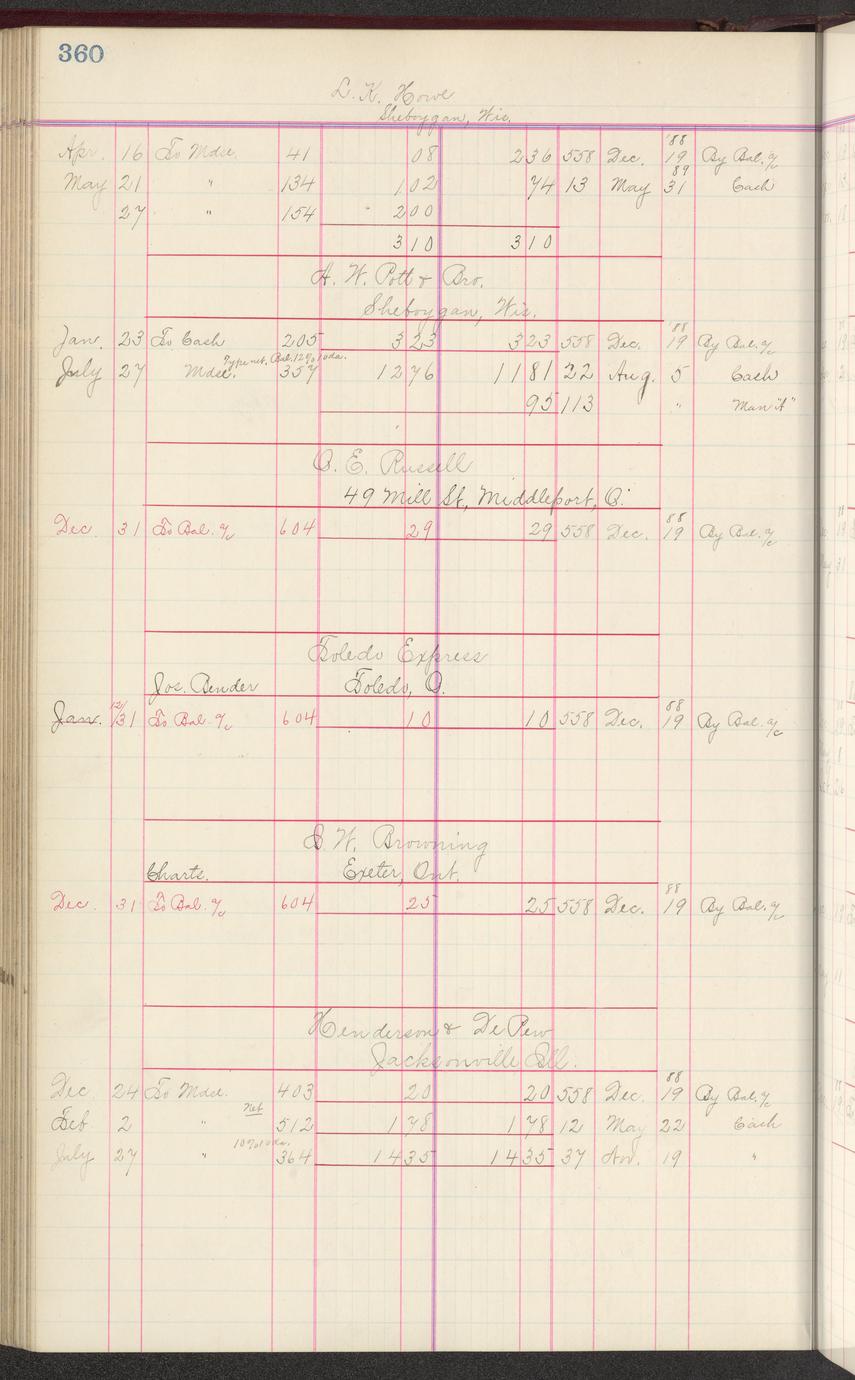 360
L. K. Howe
Sheboygan, Wis.
Apr. 16 To Mdse. 41 08 236 558 Dec. '88 19 By Bal. a/c
May 21 " 134 102 74 13 May 89 31 Cash
27 " 154 200
310 310
A. W. Pott & Bro.
Sheboygan, Wis.
Jan. 23 To Cash 205 323 323 558 Dec. '88 19 By Bal. a/c
Type net, Bal. 12% 10 da.
July 27 Mdse. 357 1276 1181 22 Aug. 5 Cash
95 113 " Man "A"
C. E. Russell
49 Mill St., Middleport, O.
Dec. 31 To Bal. a/c 604 29 29 558 Dec. 88 19 By Bal. a/c
Toledo Express
Jos. Bender Toledo, O.
Jan. 12/31 To Bal. a/c 604 10 10 558 Dec. 88 19 By Bal. a/c
S. W. Browning
Charts. Exeter, Ont.
Dec. 31 To Bal. a/c 604 25 25 558 Dec. 88 19 By Bal. a/c
Henderson & De Pew
Jacksonville Ill.
Dec 24 To Mdse. 403 20 20 558 Dec. 88 19 By Bal. a/c
Net
Feb. 2 " 512 178 178 12 May 22 Cash
10% 10 da.
July 27 " 364 1435 1435 37 Nov. 19 "